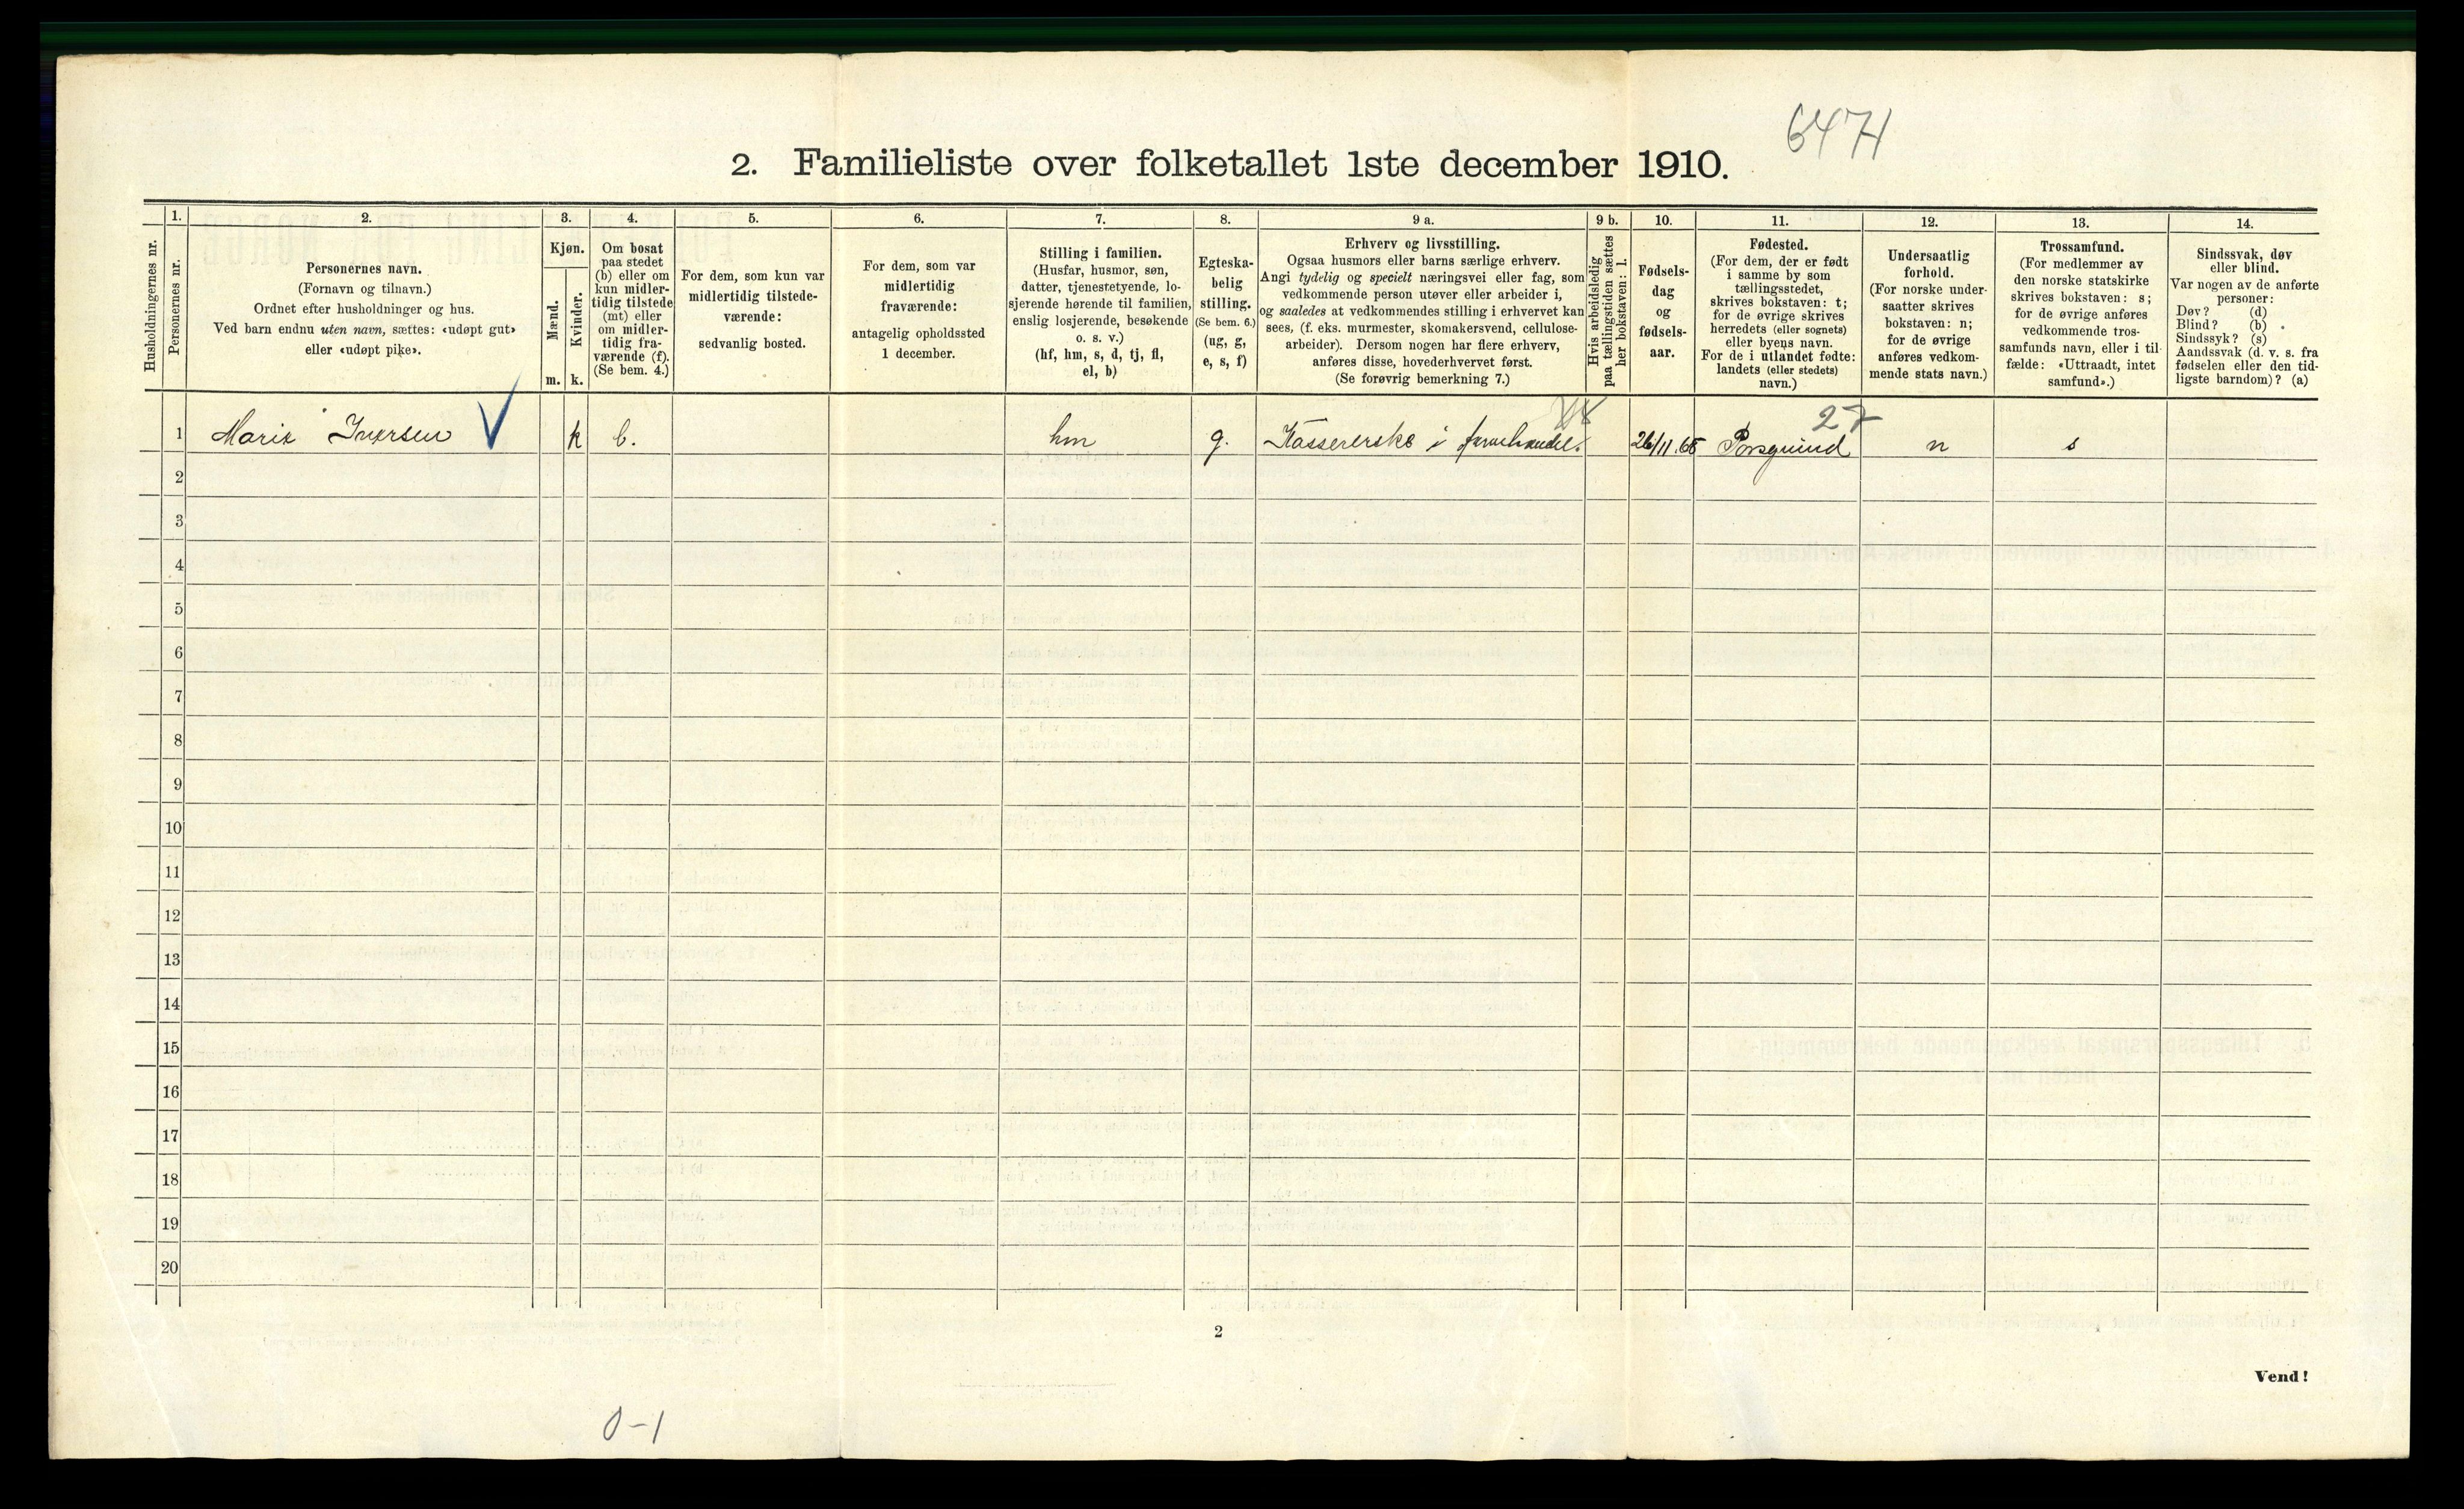 6474
2. Familieliste over folketallet 1ste december 1910.
Husholdningernes nr.
1.
Personernes nr.
2.
Personernes navn.
(Fornavn og tilnavn.)
Ordnet efter husholdninger og hus.
Ved barn endnu uten navn, sættes: «udøpt gut»
eller «udøpt pike».
3.
Kjøn.
Mænd.
Kvinder.
m.
k.
4.
Om bosat
paa stedet
(b) eller om
kun midler-
tidig tilstede
(mt) eller
om midler-
tidig fra-
værende (f).
(Se bem. 4.)
5.
For dem, som kun var
midlertidig tilstede-
værende:
sedvanlig bosted.
6.
For dem, som var
midlertidig
fraværende:
antagelig opholdssted
1 december.
7.
Stilling i familien.
(Husfar, husmor, søn,
datter, tjenestetyende, lo-
sjerende hørende til familien,
enslig losjerende, besøkende
o. s. v.)
(hf, hm, s, d, tj, fl,
el, b)
8.
Egteska-
belig
stilling.
(Se bem. 6.)
(ug, g,
e, s, f)
9 a.
Erhverv og livsstilling.
Ogsaa husmors eller barns særlige erhverv.
Angi tydelig og specielt næringsvei eller fag, som
vedkommende person utøver eller arbeider i,
og saaledes at vedkommendes stilling i erhvervet kan
sees, (f. eks. murmester, skomakersvend, cellulose-
arbeider). Dersom nogen har flere erhverv,
anføres disse, hovederhvervet først.
(Se forøvrig bemerkning 7.)
9 b.
Hvis arbeidsledig
paa tællingstiden sættes
her bokstaven: l.
10.
Fødsels-
dag
og
fødsels-
aar.
11.
Fødested.
(For dem, der er født
i samme by som
tællingsstedet,
skrives bokstaven: t;
for de øvrige skrives
herredets (eller sognets)
eller byens navn.
For de i utlandet fødte:
landets (eller stedets)
navn.)
12.
Undersaatlig
forhold.
(For norske under-
saatter skrives
bokstaven: n;
for de øvrige
anføres vedkom-
mende stats navn.)
13.
Trossamfund.
(For medlemmer av
den norske statskirke
skrives bokstaven: s;
for de øvrige anføres
vedkommende tros-
samfunds navn, eller i til-
fælde: «Uttraadt, intet
samfund».)
14.
Sindssvak, døv
eller blind.
Var nogen av de anførte
personer:
Døv? (d)
Blind? (b)
Sindssyk? (s)
Aandssvak (d. v. s. fra
fødselen eller den tid-
ligste barndom)? (a)
27
1 Marie Iversen k b. hm g. Kassererske i farvehandel. 26/11.65 Porsgrund n s
2
3
4
5
6
7
8
9
10
11
12
13
14
15
16
17
18
19
20
2
Vend!
0-1